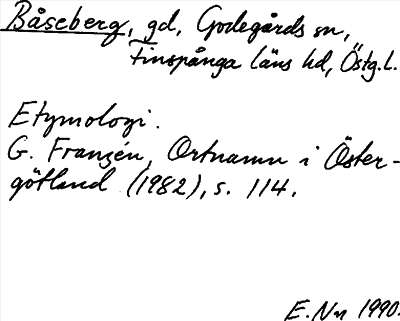 Båseberg, gd, Godegårds sn,
Finspånga läns hd, Östg.l.
Etymologi.
G. Franzén, Ortnamn i Öster-
götland (1982), s. 114.
E.Nn 1990.